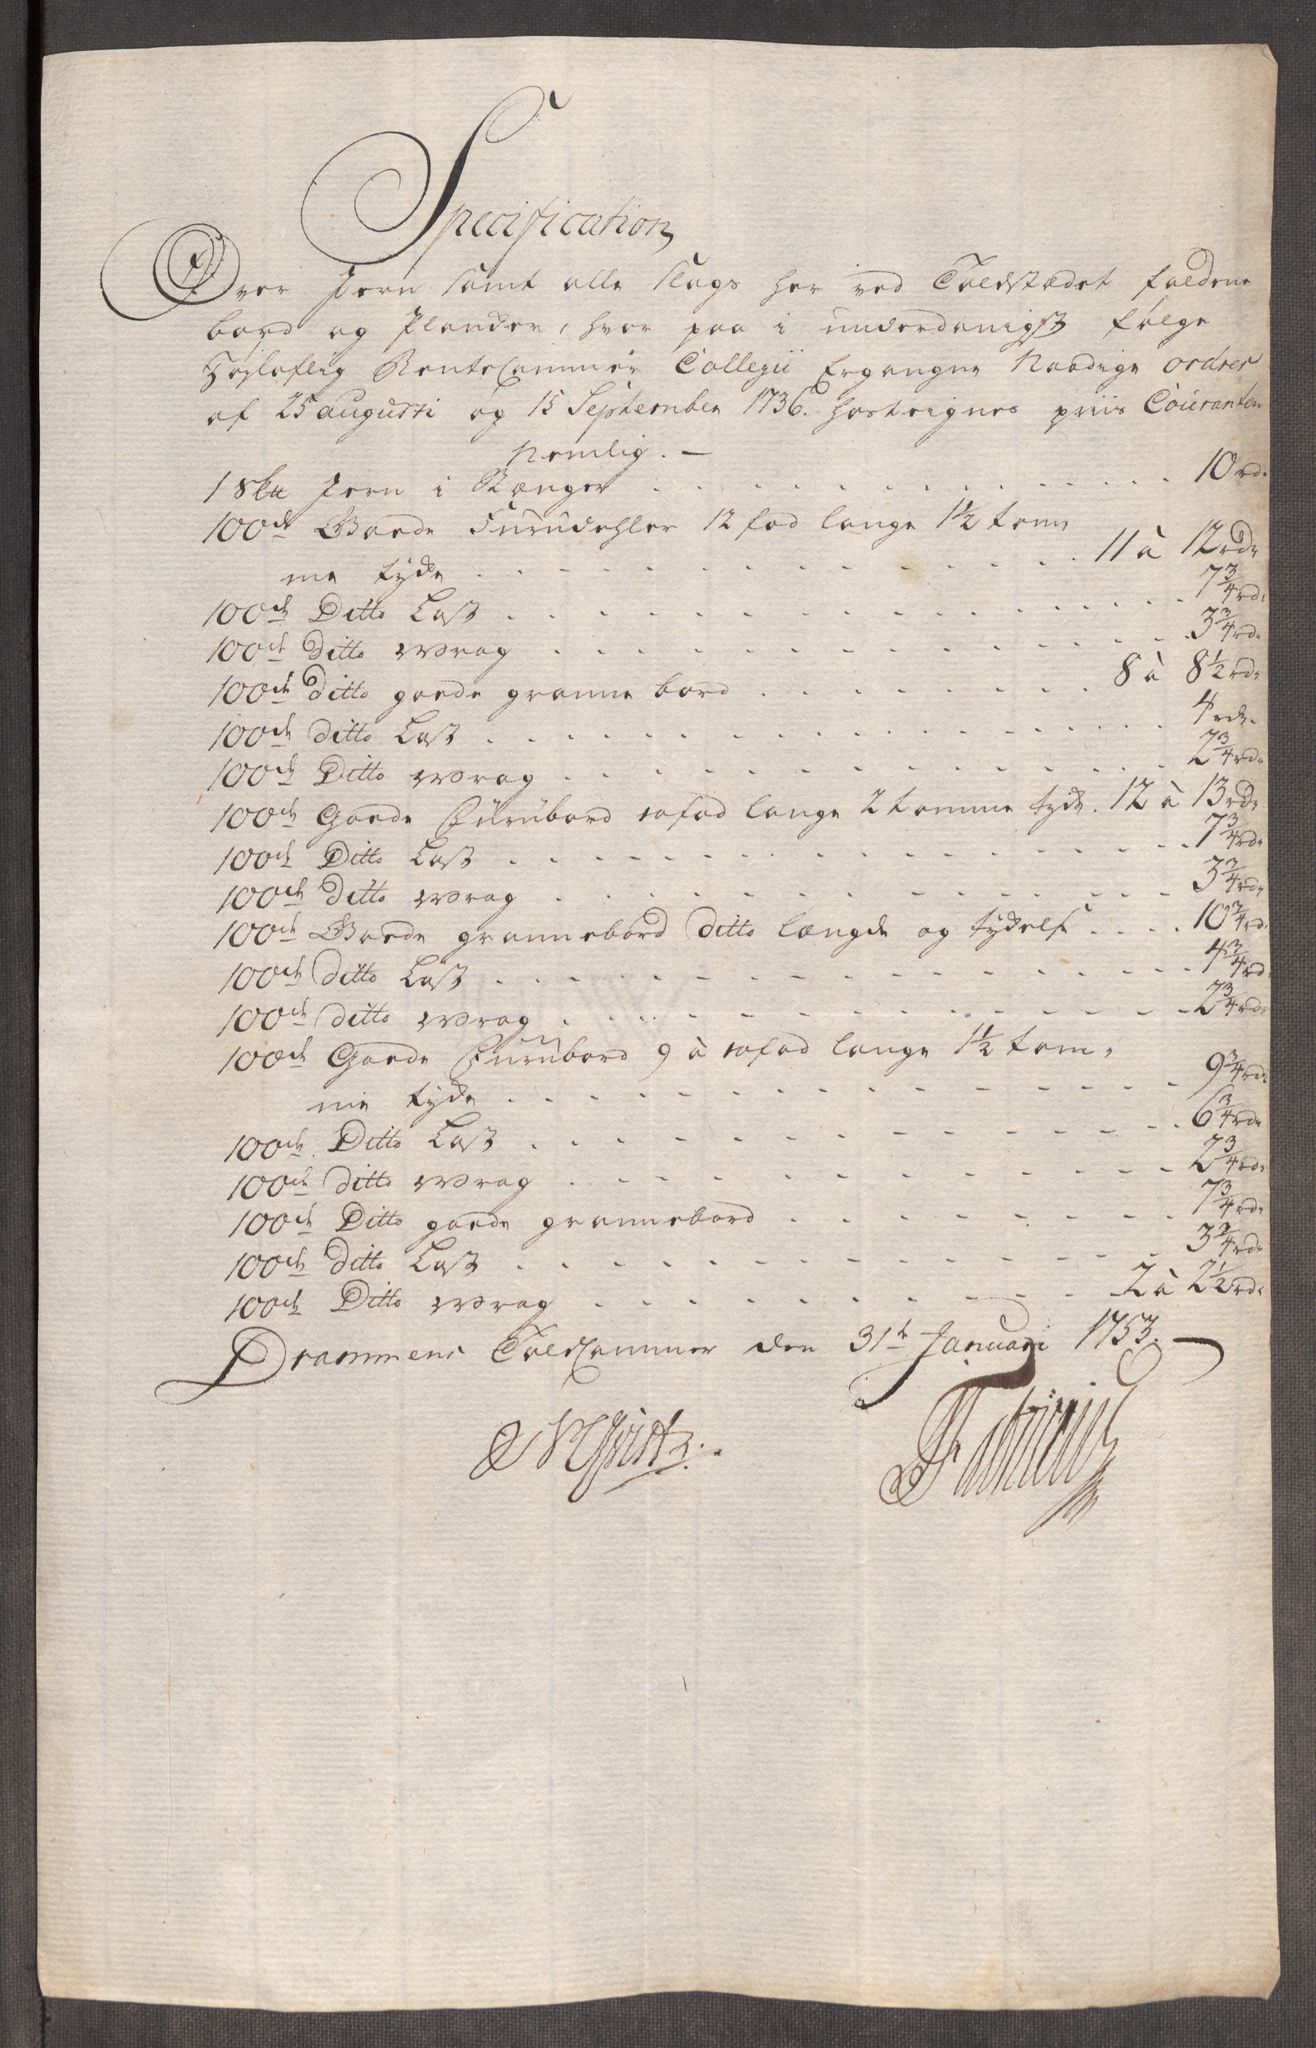 Specification
Over Jern samt alle slags her ved Toldstædet faldene
bord og Plancker, hvor paa i underdanigst følge
Højloflig RenteCammer Collegii Ergangne Naadige ordres
af 25 augusti og 15 September 1736. hosteignes priis Couranten
Nemlig. —
1 Skt Jern i Stænger . . . 10 rd.
100de Goede Furudehler 12 fod lange 1½ tom
me tyke . . . 11 à 12 rdr
100de Ditto Last . . . 7¾ rd.
100de ditto Wrag . . . 3¾ rd.
100de ditto goede granne bord . . . 8 à 8½ rd.
100de ditto Last . . . 4 rdr.
100de Ditto Wrag . . . 2¾ rd.
100de Goede Furubord 10 fod lange 2 tomme tyke . 12 à 13 rdr
100de Ditto Last . . . 7¾ rd.
100de ditto Wrag . . . 3¾ rd.
100de Goede grannebord ditto længde og tykelse . . . . 10¾ rd.
100de ditto Last . . . 4¾ rd.
100de ditto Wrag . . . 2¾ rd.
100de Goede Furubord 9 à 10 fod lange 1½ tom,
me tyke . . . 9¾ rd.
100de Ditto Last . . . 6¾ rd.
100de ditto Wrag . . . 2¾ rd.
100de Ditto goede grannebord . . . 7¾ rd.
100de ditto Last . . . 3¾ rd.
100de Ditto Wrag . . . 2 à 2½ rd.
Drammens ToldCammer den 31te Januari 1753. —